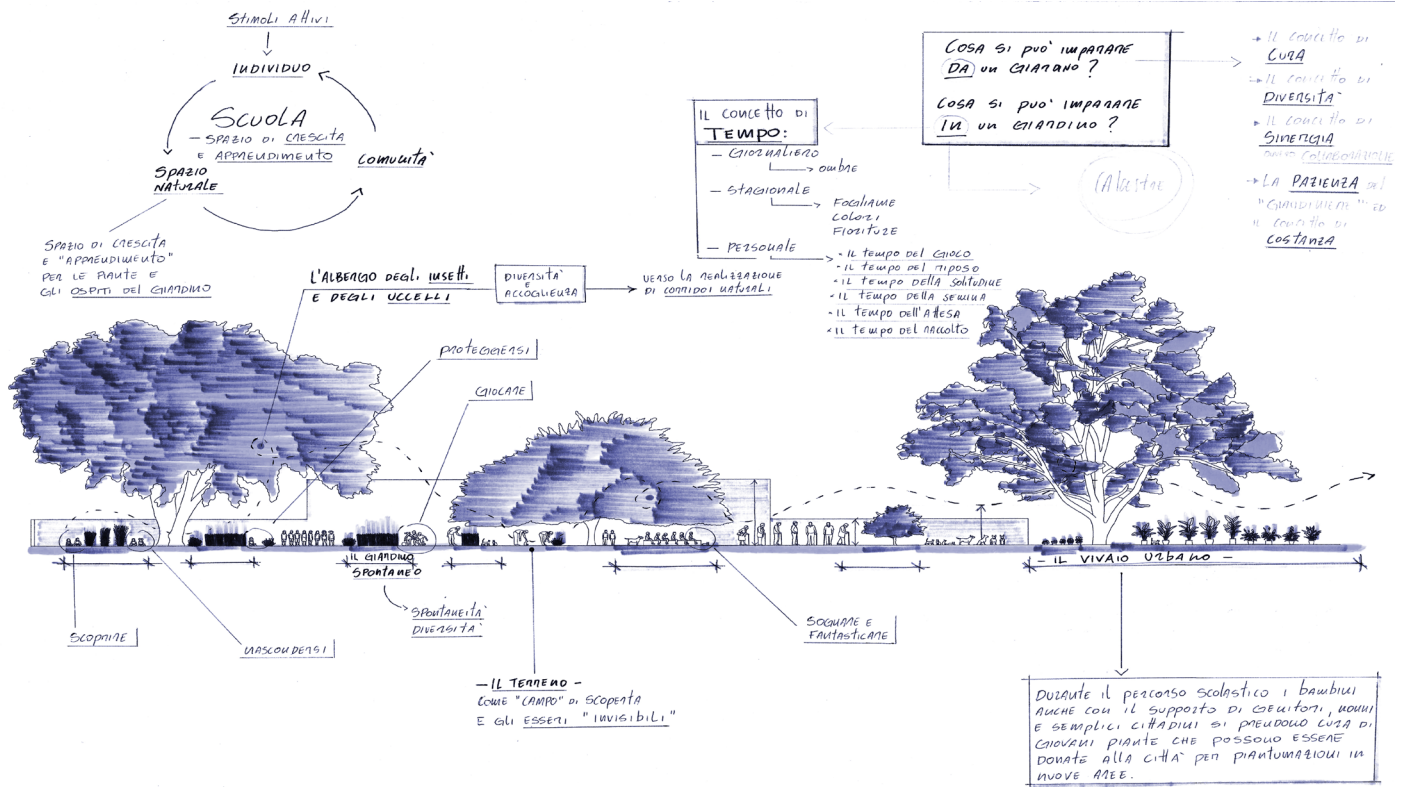 STIMOLI ATTIVI
INDIVIDUO
SCUOLA
— SPAZIO DI CRESCITA
E APPRENDIMENTO
COMUNITÀ
SPAZIO
NATURALE
SPAZIO DI CRESCITA
E "APPRENDIMENTO"
PER LE PIANTE E
GLI OSPITI DEL GIARDINO
L'ALBERGO DEGLI INSETTI
E DEGLI UCCELLI
DIVERSITÀ
E
ACCOGLIENZA
VERSO LA REALIZZAZIONE
DI CORRIDOI NATURALI
IL CONCETTO DI
TEMPO:
— GIORNALIERO
OMBRE
— STAGIONALE
FOGLIAME
COLORI
FIORITURE
— PERSONALE
- IL TEMPO DEL GIOCO
- IL TEMPO DEL RIPOSO
- IL TEMPO DELLA SOLITUDINE
- IL TEMPO DELLA SEMINA
- IL TEMPO DELL'ATTESA
- IL TEMPO DEL RACCOLTO
COSA SI PUÒ IMPARARE
DA UN GIARDINO?
COSA SI PUÒ IMPARARE
IN UN GIARDINO?
→ IL CONCETTO DI
CURA
→ IL CONCETTO DI
DIVERSITÀ
→ IL CONCETTO DI
SINERGIA
COLLABORAZIONE
→ LA PAZIENZA DEL
"GIARDINIERE" ED
IL CONCETTO DI
COSTANZA
PROTEGGERSI
GIOCARE
IL GIARDINO
SPONTANEO
SPONTANEITÀ
DIVERSITÀ
SCOPRIRE
NASCONDERSI
— IL TERRENO —
COME "CAMPO" DI SCOPERTA
E GLI ESSERI "INVISIBILI"
SOGNARE E
FANTASTICARE
— IL VIVAIO URBANO —
DURANTE IL PERCORSO SCOLASTICO I BAMBINI
ANCHE CON IL SUPPORTO DI GENITORI, NONNI
E SEMPLICI CITTADINI SI PRENDONO CURA DI
GIOVANI PIANTE CHE POSSONO ESSERE
DONATE ALLA CITTÀ PER PIANTUMAZIONI IN
NUOVE AREE.